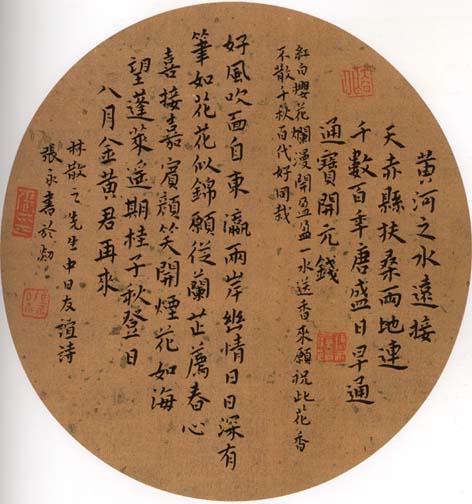 黃河之水遠接
天赤縣扶桑兩地連
千數百年唐盛日早通
通寶開元錢
紅白櫻花爛漫開盈盈一水送香來願祝此花香
不散千秋百代好同栽
好風吹面自東瀛兩岸幽情日日深有
筆如花花似錦願從蘭芷薦春心
喜接嘉賓顏笑開煙花如海
望蓬萊遙期桂子秋登日
八月金黃君再來
林散之先生中日友誼詩
張永書於